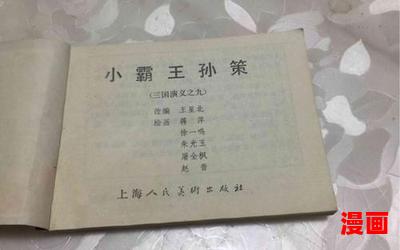 小霸王孙策
(三国演义之九)
改编 王星北
绘画 蒋萍
徐一鸣
朱光玉
屠全枫
赵晋
上海人民美術出版社
漫画